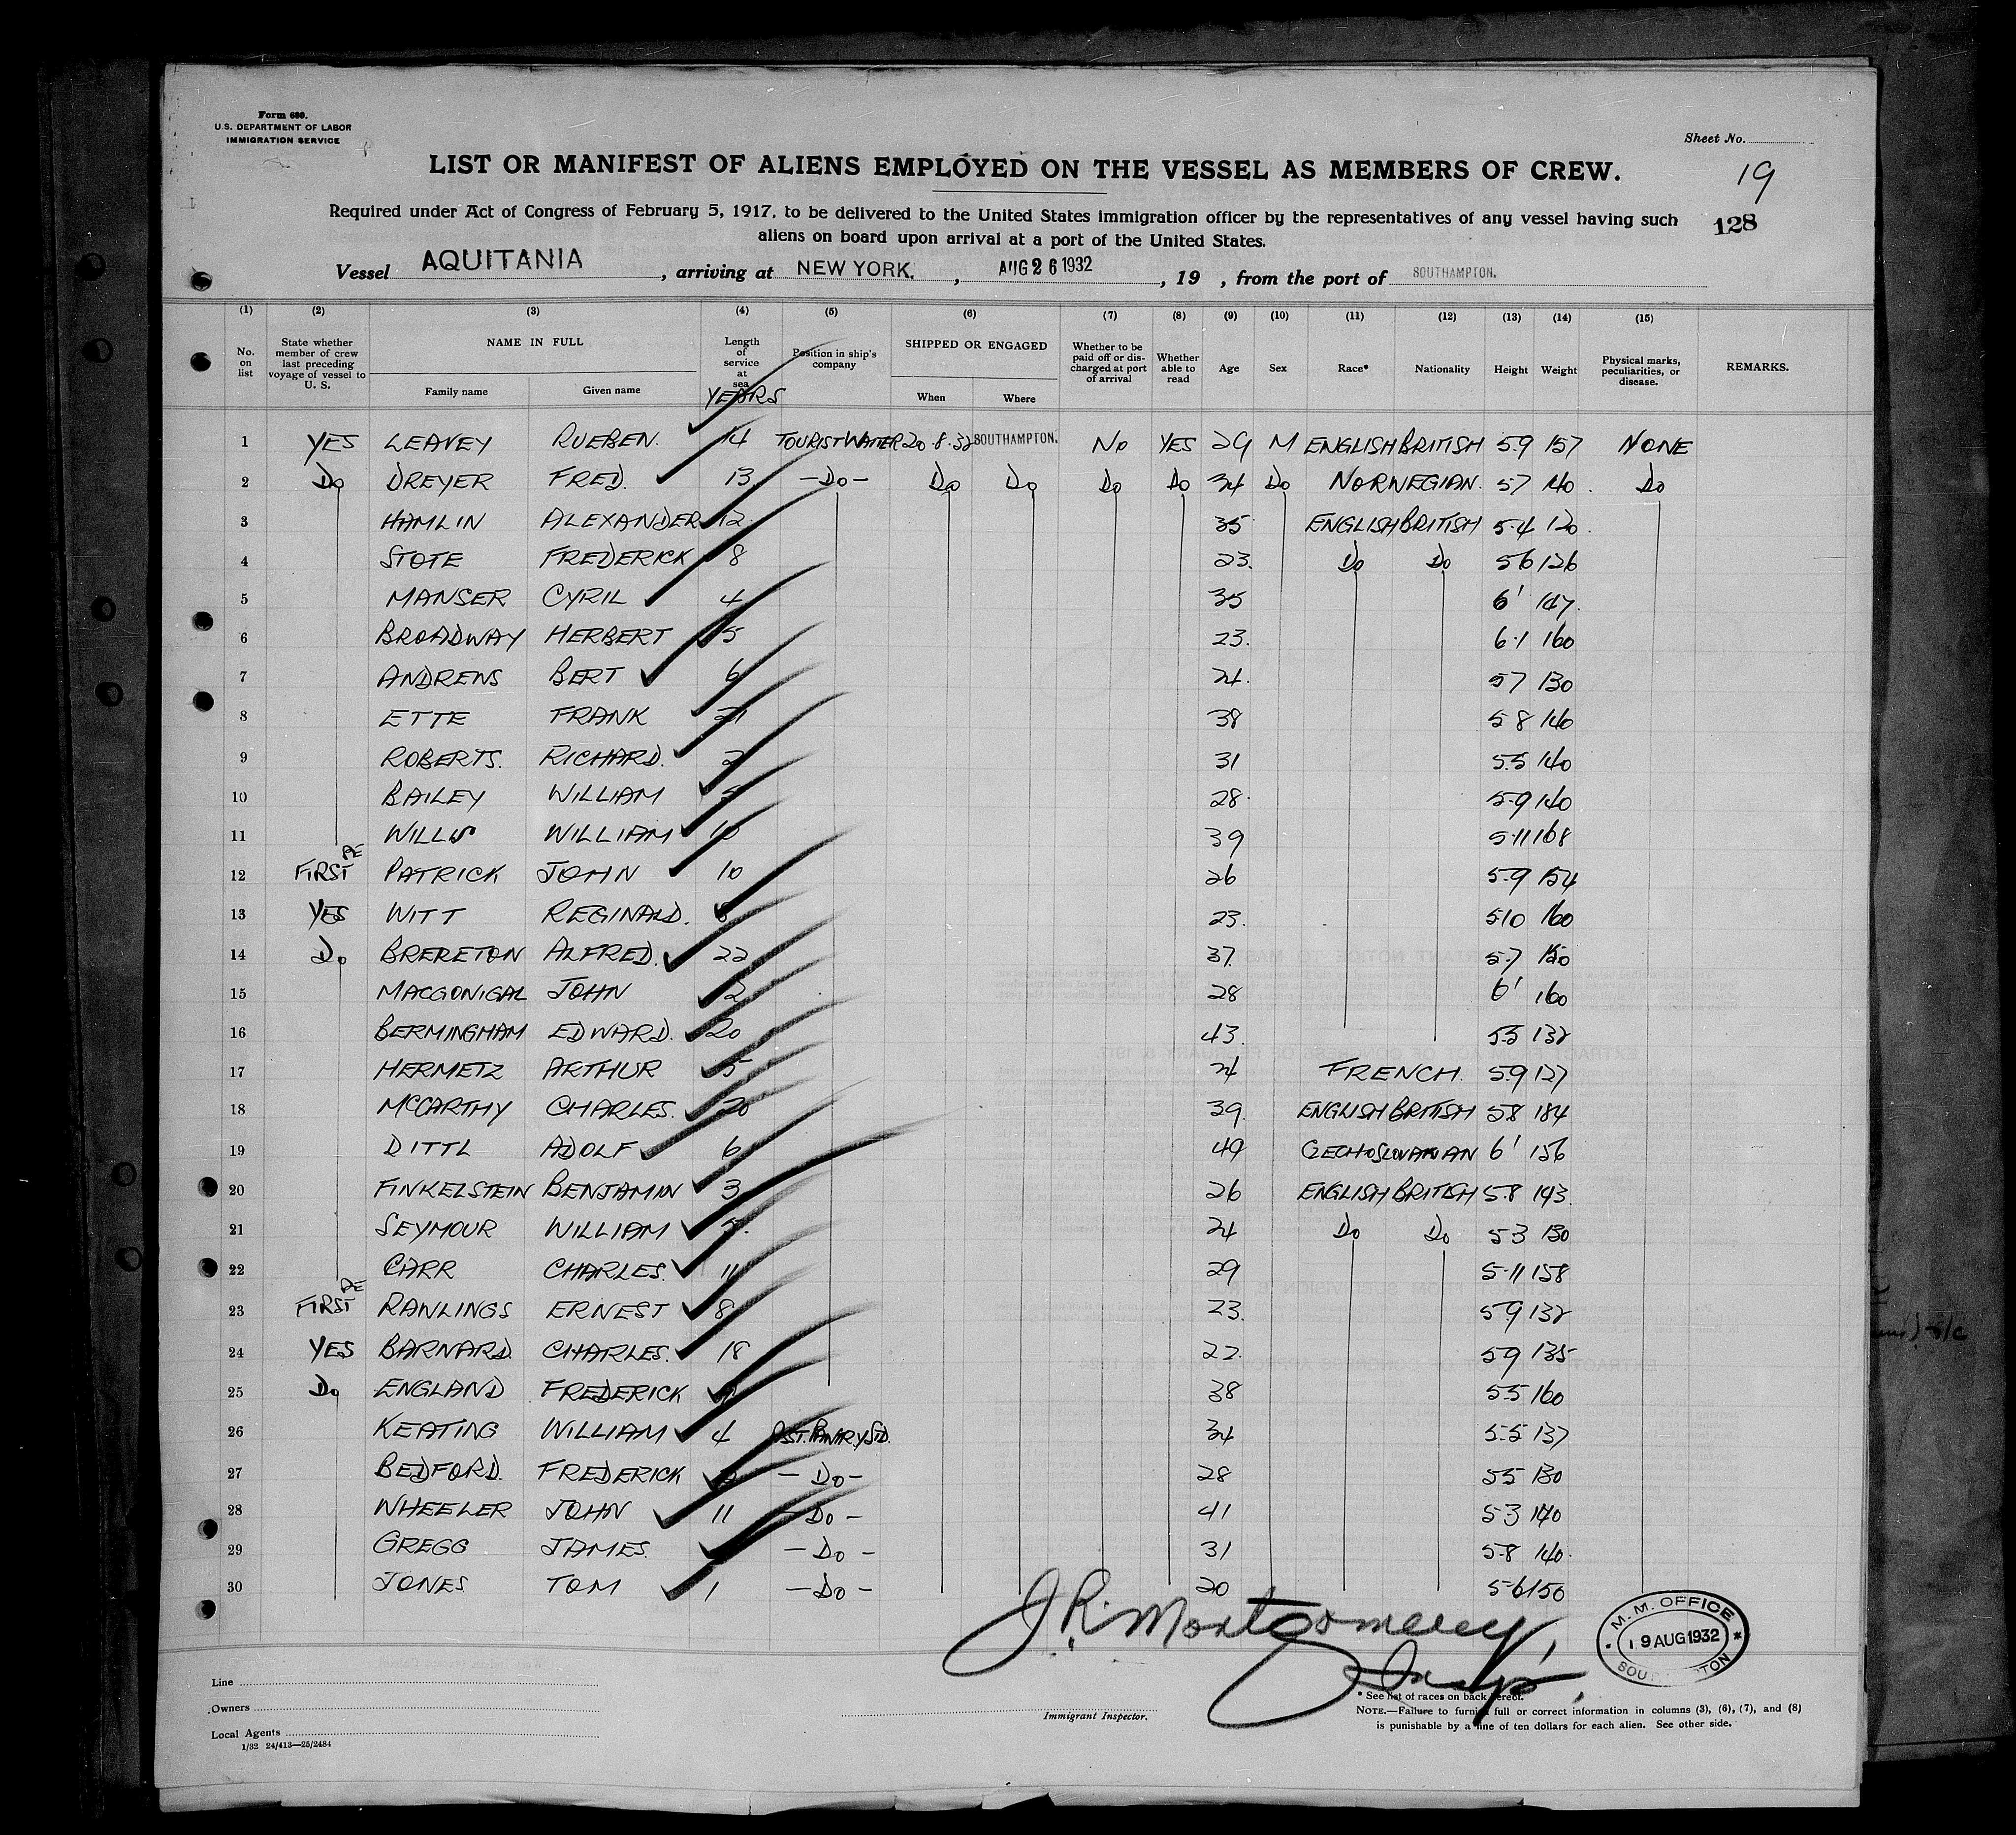 Form 680.
U.S. DEPARTMENT OF LABOR
IMMIGRATION SERVICE
Sheet No.
LIST OR MANIFEST OF ALIENS EMPLOYED ON THE VESSEL AS MEMBERS OF CREW.
19
Required under Act of Congress of February 5, 1917, to be delivered to the United States immigration officer by the representatives of any vessel having such
128
aliens on board upon arrival at a port of the United States.
Vessel AQUITANIA, arriving at NEW YORK., AUG 26 1932, 19 , from the port of SOUTHAMPTON.
(1) (2) (3) (4) (5) (6) (7) (8) (9) (10) (11) (12) (13) (14) (15)
No. on list | State whether member of crew last preceding voyage of vessel to U. S. | NAME IN FULL | Length of service at sea | Position in ship's company | SHIPPED OR ENGAGED | Whether to be paid off or discharged at port of arrival | Whether able to read | Age | Sex | Race* | Nationality | Height | Weight | Physical marks, peculiarities, or disease. | REMARKS.
Family name | Given name | YEARS | When | Where
1 YES LEAVEY RUEBEN. 14 TOURIST WAITER 20.8.32 SOUTHAMPTON. NO YES 29 M ENGLISH BRITISH 5.9 157 NONE
2 Do DREYER FRED. 13 -Do- Do Do Do Do 34 Do NORWEGIAN. 5.7 140. Do
3 HAMLIN ALEXANDER 12. 35 ENGLISH BRITISH 5.4 120.
4 STOTE FREDERICK 8 23. Do Do 5.6 126
5 MANSER CYRIL 4 35 6' 147.
6 BROADWAY HERBERT 5 23. 6.1 160
7 ANDRENS BERT 6 24. 5.7 130
8 ETTE FRANK 21 38 5.8 140
9 ROBERTS. RICHARD. 2 31 5.5 140
10 BAILEY WILLIAM 28. 5.9 140
11 WILLIS WILLIAM 10 39 5.11 168
12 FIRST PATRICK JOHN 10 26 5.9 154
13 YES WITT REGINALD. 8 23. 5.10 160
14 Do BRERETON ALFRED. 22 37. 5.7 150
15 MACGONIGAL JOHN 2 28 6' 160
16 BERMINGHAM EDWARD. 20 43. 5.5 132
17 HERMETZ ARTHUR 5 24 FRENCH. 5.9 127
18 MCCARTHY CHARLES. 20 39. ENGLISH BRITISH 5.8 184
19 DITTL ADOLF 6 49 CZECHOSLOVAKIAN 6' 156
20 FINKELSTEIN BENJAMIN 3 26 ENGLISH BRITISH 5.8 143.
21 SEYMOUR WILLIAM 5. 24 Do Do 5.3 130
22 CARR CHARLES. 11 29 5.11 158
23 FIRST RAWLINGS ERNEST 8 23. 5.9 132
24 YES BARNARD. CHARLES. 18 22. 5.9 135
25 Do ENGLAND FREDERICK 38 5.5 160
26 KEATING WILLIAM 4 ASST. PANTRY STD. 34 5.5 137
27 BEDFORD. FREDERICK 2 -Do- 28 5.5 130
28 WHEELER JOHN 11 -Do- 41 5.3 140
29 GREGG JAMES. -Do- 31 5.8 140.
30 JONES TOM 1 -Do- 20 5.6 150
J.R. Montgomery,
Insp.
M.M. OFFICE
19 AUG 1932
Line
Owners
Local Agents
1/32 24/413—25/2484
Immigrant Inspector.
* See list of races on back hereof.
NOTE.—Failure to furnish full or correct information in columns (3), (6), (7), and (8)
is punishable by a fine of ten dollars for each alien. See other side.